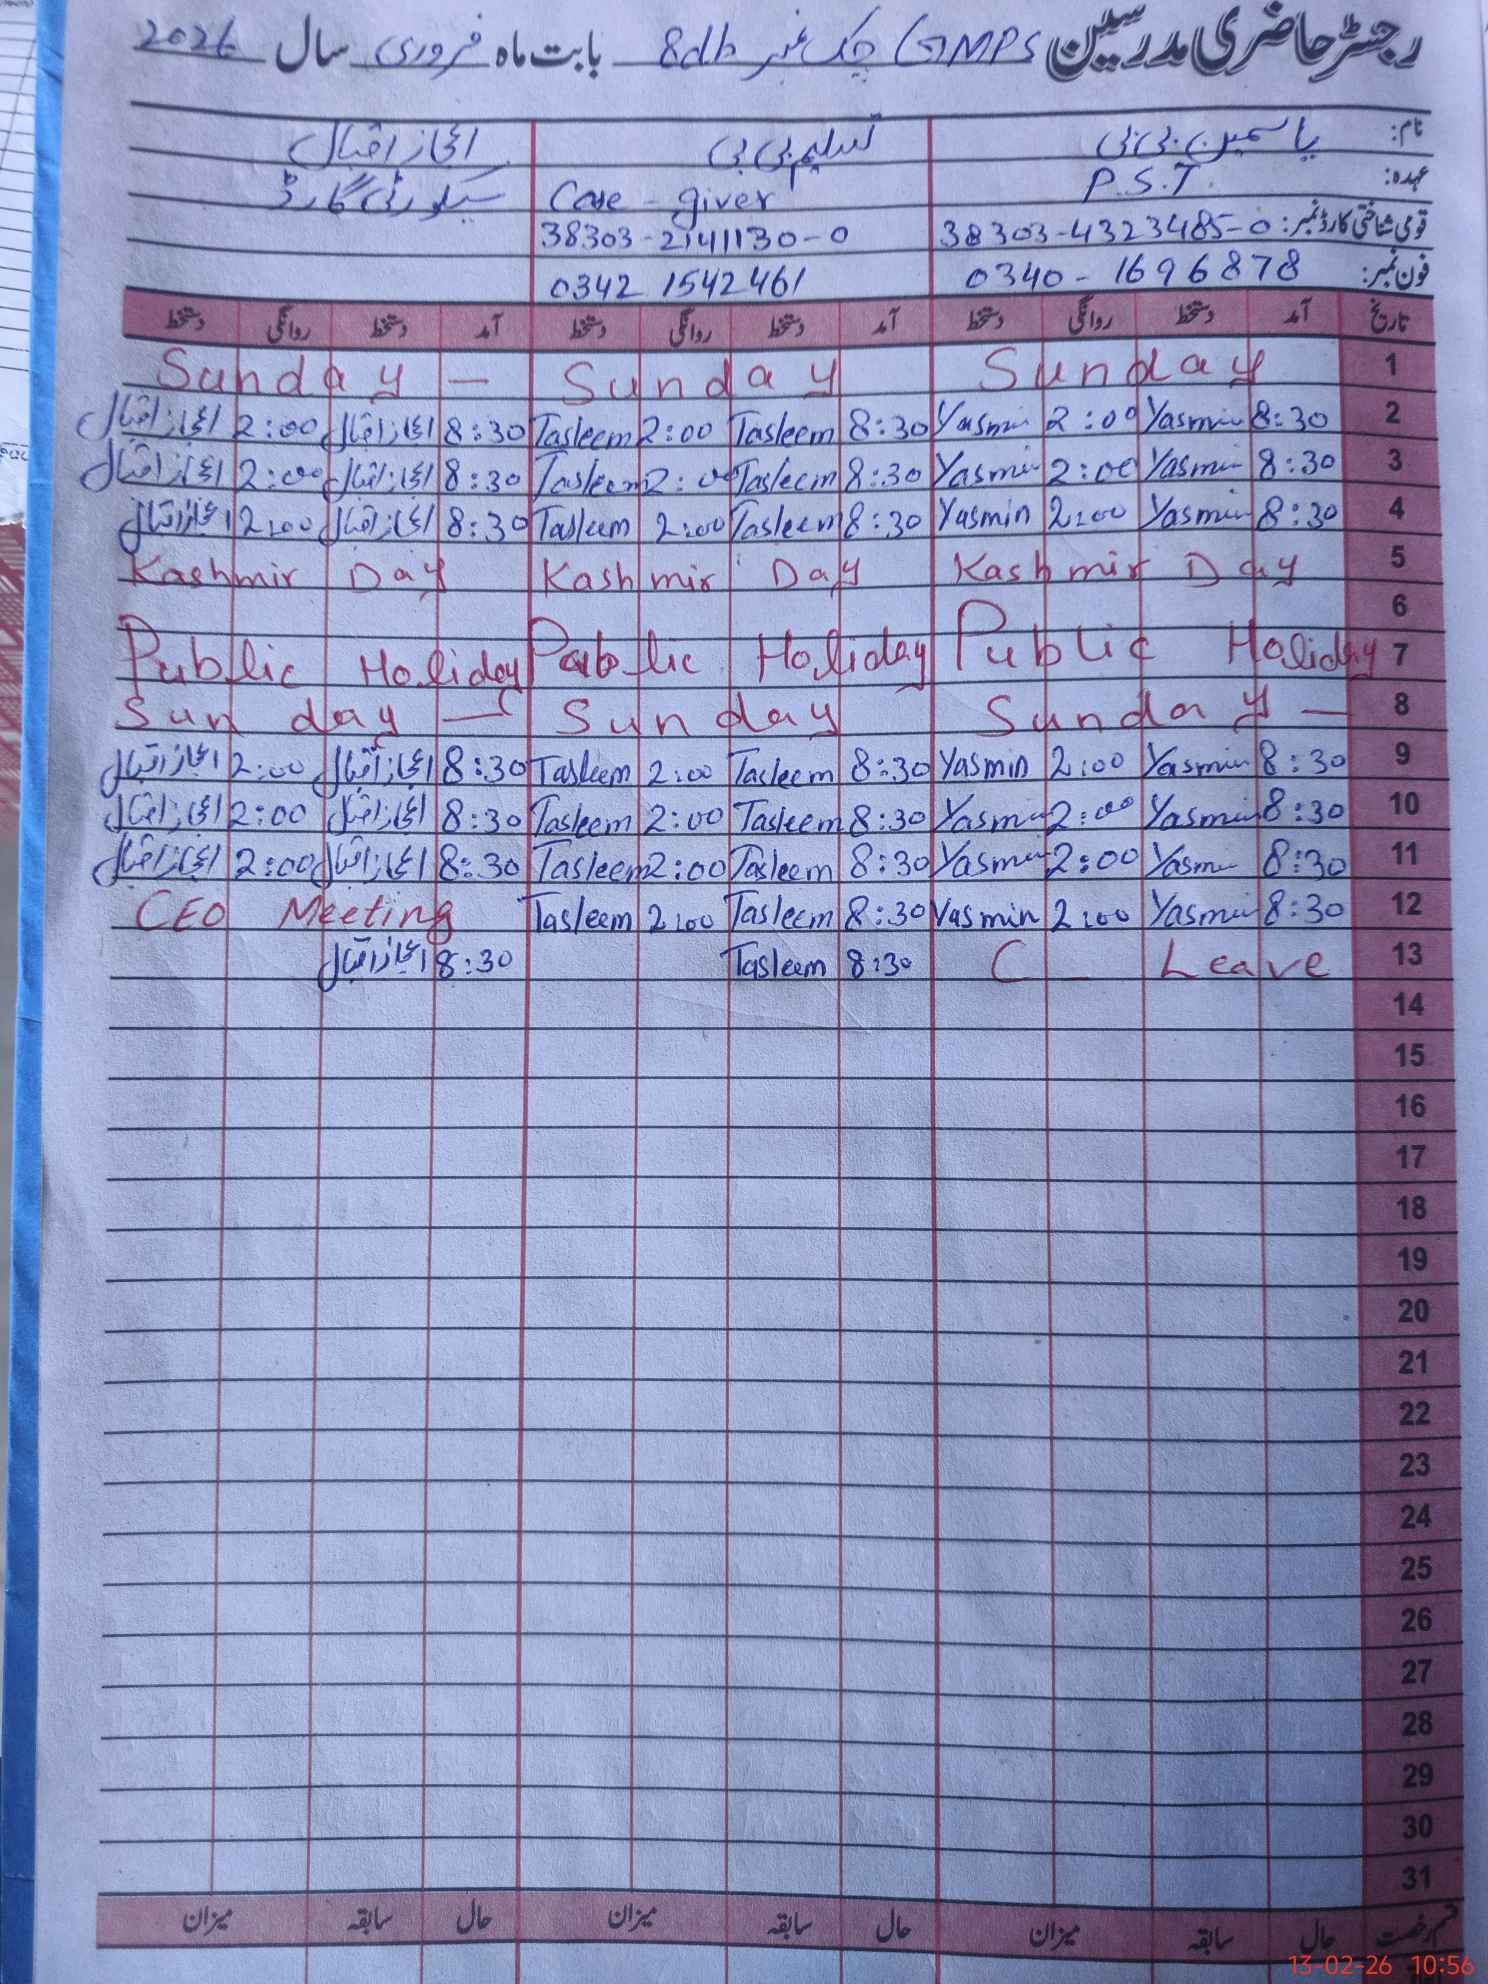 رجسٹر حاضری مدرسین GMPS چک نمبر 8db بابت ماہ فروری سال 2026
نام: یاسمین بی بی تسلیم بی بی اعجاز اقبال
عہدہ: P.S.T. Care - giver سیکورٹی گارڈ
قومی شناختی کارڈ نمبر: 38303-4323485-0 38303-2141130-0
فون نمبر: 0340-1696878 0342 1542461
تاریخ آمد دستخط روانگی دستخط آمد دستخط روانگی دستخط آمد دستخط روانگی دستخط
Sunday — Sunday Sunday 1
اعجاز اقبال 2:00 اعجاز اقبال 8:30 Tasleem 2:00 Tasleem 8:30 Yasmin 2:00 Yasmin 8:30 2
اعجاز اقبال 2:00 اعجاز اقبال 8:30 Tasleem 2:00 Tasleem 8:30 Yasmin 2:00 Yasmin 8:30 3
اعجاز اقبال 2:00 اعجاز اقبال 8:30 Tasleem 2:00 Tasleem 8:30 Yasmin 2:00 Yasmin 8:30 4
Kashmir Day Kashmir Day Kashmir Day 5
6
Public Holiday Public Holiday Public Holiday 7
Sunday — Sunday Sunday — 8
اعجاز اقبال 2:00 اعجاز اقبال 8:30 Tasleem 2:00 Tasleem 8:30 Yasmin 2:00 Yasmin 8:30 9
اعجاز اقبال 2:00 اعجاز اقبال 8:30 Tasleem 2:00 Tasleem 8:30 Yasmin 2:00 Yasmin 8:30 10
اعجاز اقبال 2:00 اعجاز اقبال 8:30 Tasleem 2:00 Tasleem 8:30 Yasmin 2:00 Yasmin 8:30 11
CEO Meeting Tasleem 2:00 Tasleem 8:30 Yasmin 2:00 Yasmin 8:30 12
اعجاز اقبال 8:30 Tasleem 8:30 C — Leave 13
14
15
16
17
18
19
20
21
22
23
24
25
26
27
28
29
30
31
قسم رخصت حال سابقہ میزان حال سابقہ میزان حال سابقہ میزان
13-02-26 10:56